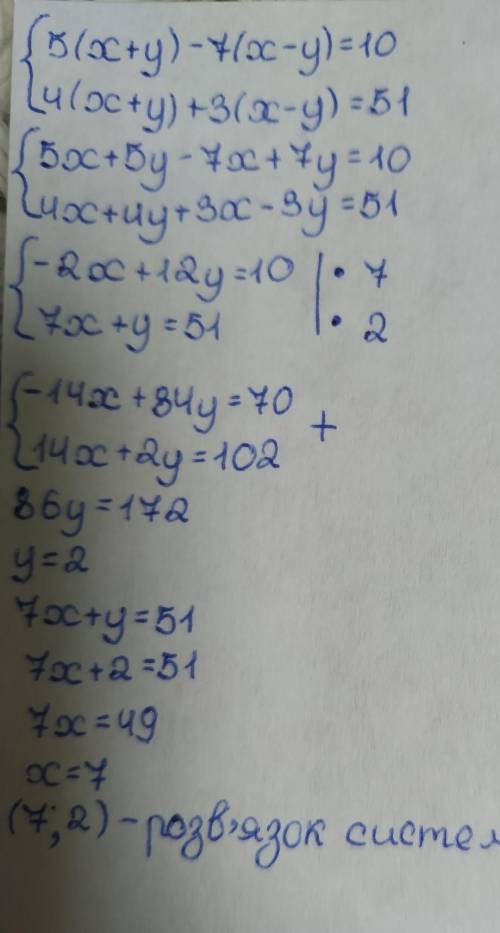 {5(x+y)-7(x-y)=10
4(x+y)+3(x-y)=51
{5x+5y-7x+7y=10
4x+4y+3x-3y=51
{-2x+12y=10 |• 7
7x+y=51 |• 2
{-14x+84y=70 +
14x+2y=102
86y=172
y=2
7x+y=51
7x+2=51
7x=49
x=7
(7;2)-розв'язок систем